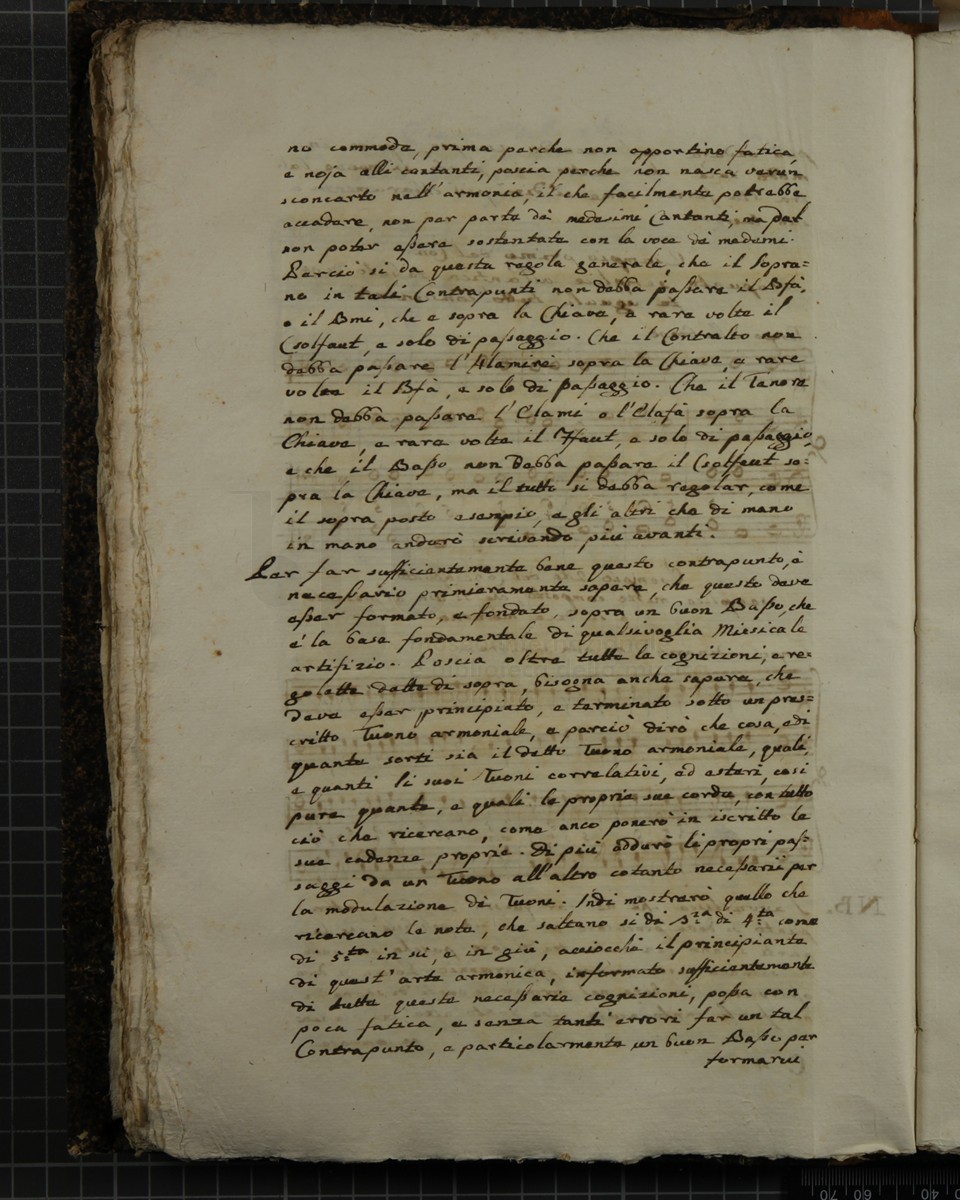 no commode, prima perche non apportino fatica,
e noja alli cantanti, poscia perche non nasca verun
sconcerto nell'armonia, il che facilmente potrebbe
accadere, non per parte de medesimi Cantanti, ma pel
non poter eßere sostentate con la voce de medemi.
Perciò si da questa regola generale, che il Sopra=
no in tali Contrapunti non debba paßare il Bfà,
o il Bmi, che e sopra la Chiave, e rare volte il
Csolfaut, e solo di paßaggio. Che il Contralto non
debba paßare l'Alamirè sopra la Chiave, e rare
volte il Bfà, e solo di paßaggio. Che il Tenore
non debba paßare l'Elami o l'Elafà sopra la
Chiave, e rare volte il Ffaut, e solo di paßaggio,
e che il Baßo non debba paßare il Csolfaut so=
pra la Chiave, ma il tutto si debba regolar, come
il sopra posto esempio, e gli altri che di mano
in mano anderò scrivendo più avanti.
Per far sufficientemente bene questo contrapunto, è
neceßario primieramente sapere, che questo deve
eßer formato, e fondato, sopra un buon Baßo, che
é la base fondamentale di qualsivoglia Musicale
artifizio. Poscia oltre tutte le cognizioni, e re=
golette dette di sopra, bisogna anche sapere, che
deve eßer principiato, e terminato sotto un pres=
critto Tuono armoniale, e perciò dirò che cosa, e di
quante sorti sia il detto Tuono armoniale, quali,
e quanti li suoi Tuoni correlativi, ed esteri, così
pure quante, e quali le proprie sue corde, con tutto
ciò che ricercano, come anco ponerò in iscritto le
sue cadenze proprie. Di più addurò li propri paß=
saggi da un Tuono all'altro cotanto neceßarii per
la modulazione di Tuoni. Indi mostrerò quello che
ricercano le note, che saltano si di 3:za di 4:ta come
di 5:ta in sù, e in giù, acciocchè il principiante
di quest'arte armonica, informato sufficientemente
di tutte queste neceßarie cognizioni, poßa con
poca fatica, e senza tanti errori far un tal
Contrapunto, e particolarmente un buon Baßo per
formarvi